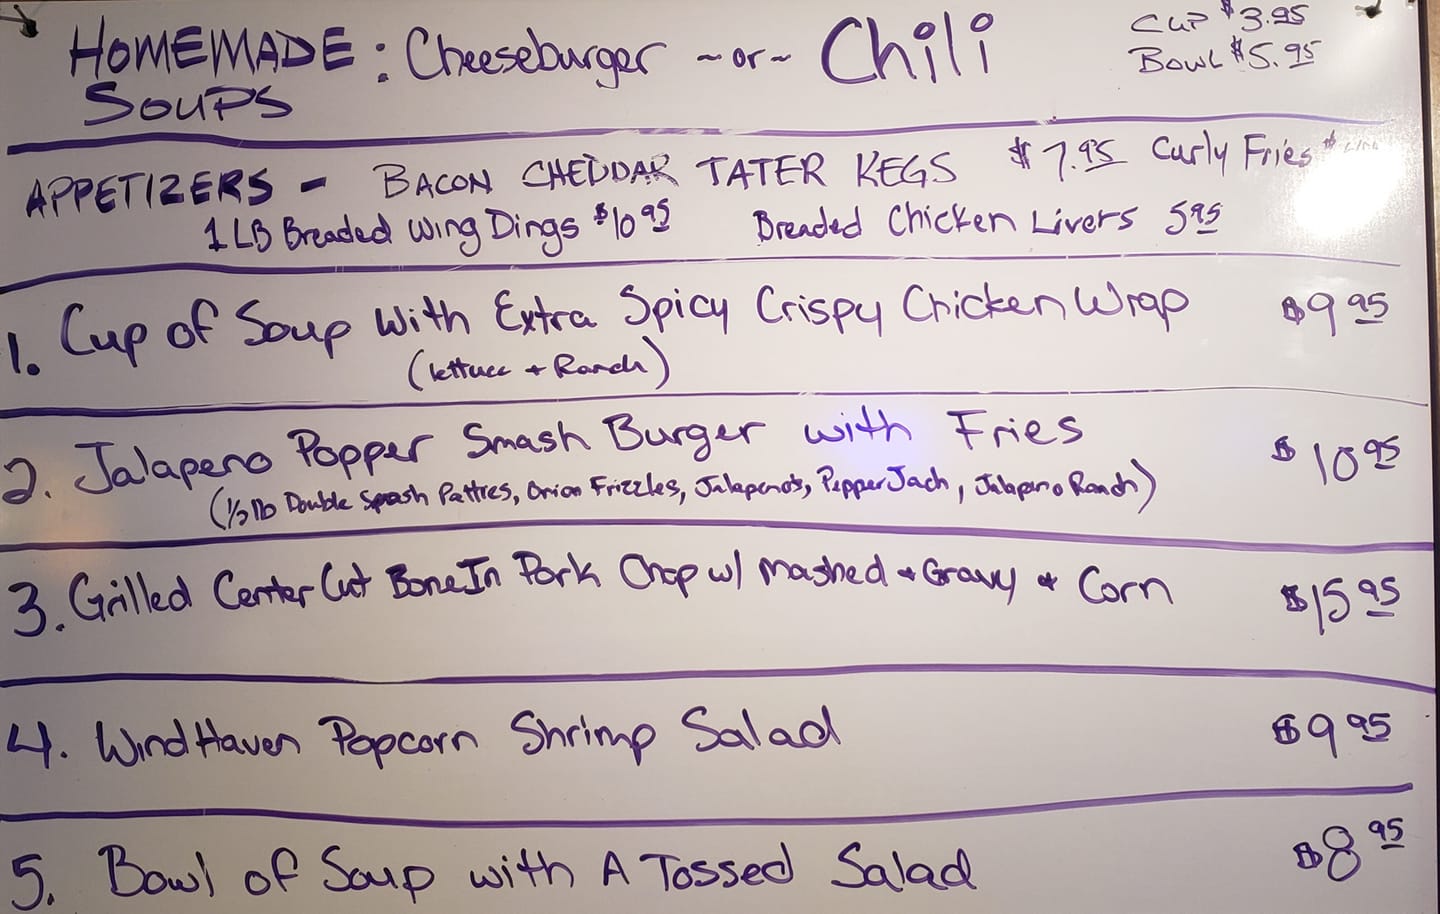 HOMEMADE : Cheeseburger ~or~ Chili Cup $3.95
SOUPS Bowl $5.95
APPETIZERS - BACON CHEDDAR TATER KEGS $7.95 Curly Fries $
1 LB Breaded Wing Dings $10 95 Breaded Chicken Livers 5 95
1. Cup of Soup With Extra Spicy Crispy Chicken Wrap $9 95
(lettuce + Ranch)
2. Jalapeno Popper Smash Burger with Fries $10 95
(1/2 lb Double Smash Patties, Onion Frizzles, Jalapeno's, Pepper Jach, Jalapeno Ranch)
3. Grilled Center Cut Bone In Pork Chop w/ Mashed + Gravy + Corn $15 95
4. WindHaven Popcorn Shrimp Salad $9 95
5. Bowl of Soup with A Tossed Salad $8 95